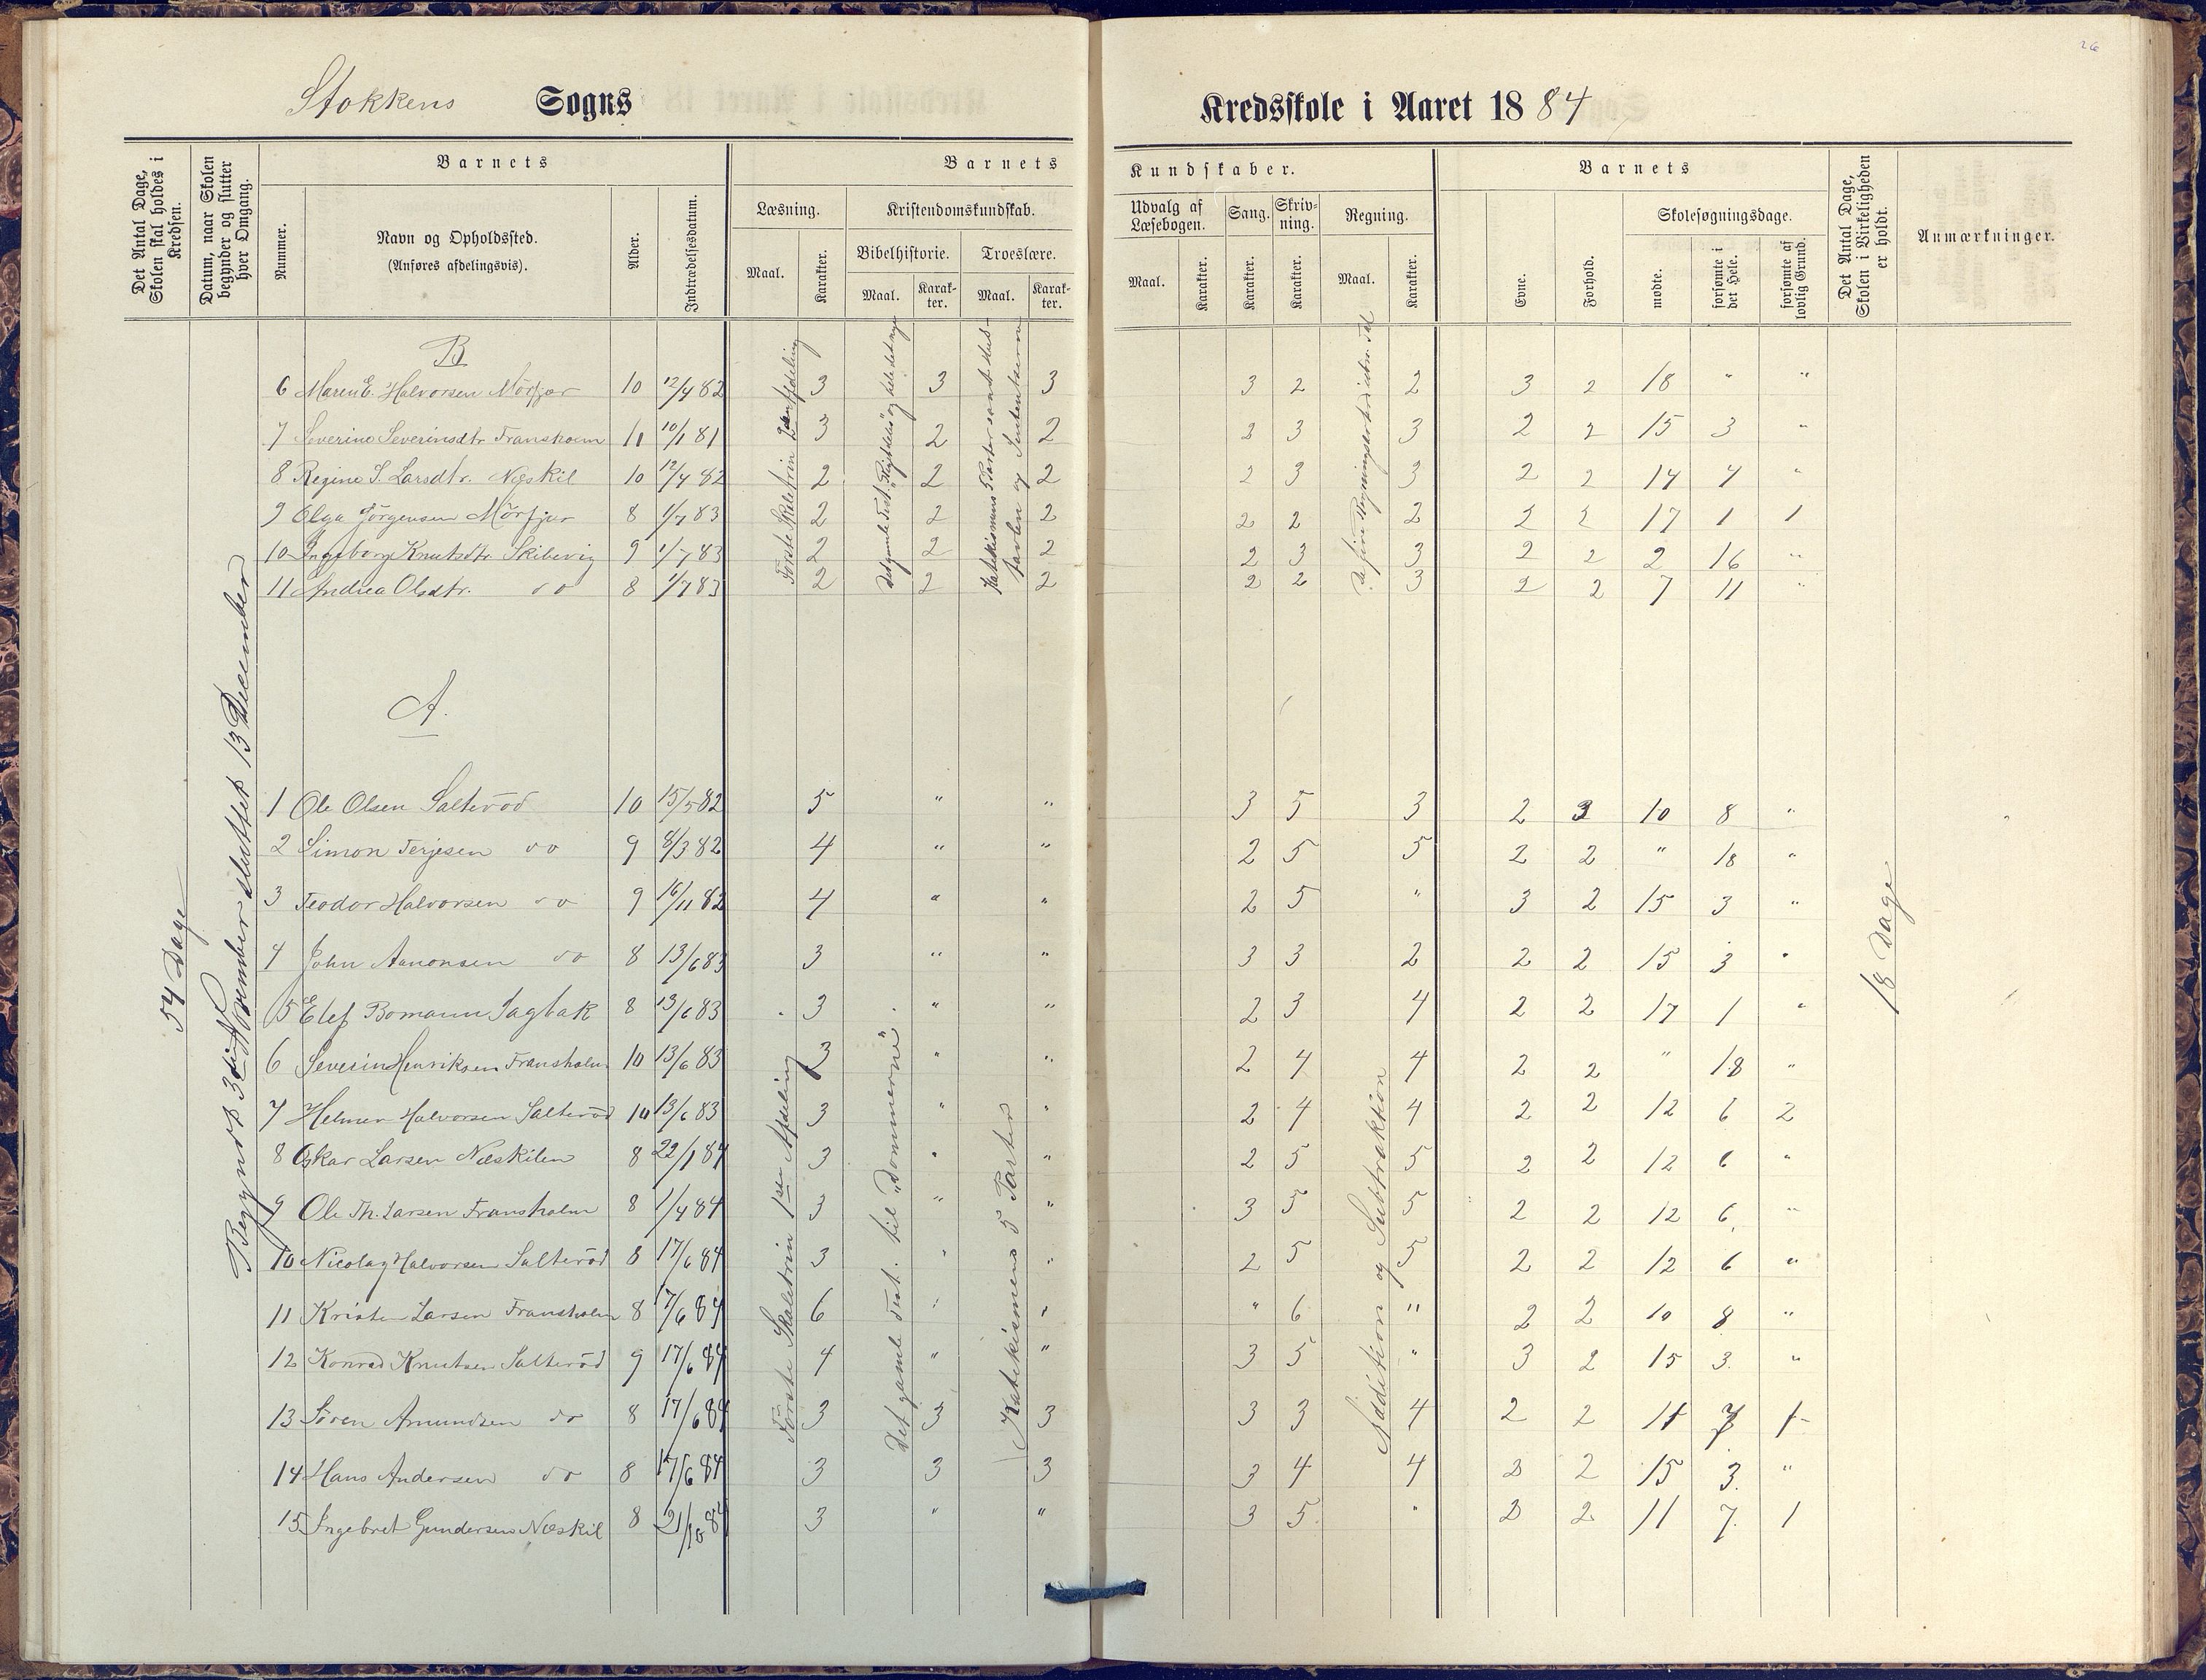 26
Stokkens Sogns Kredsskole i Aaret 1884
Det Antal Dage, Skolen skal holdes i Kredsen.
Datum, naar Skolen begynder og slutter hver Omgang.
Barnets
Nummer.
Navn og Opholdssted.
(Anføres afdelingsvis).
Alder.
Indtrædelsesdatum.
Barnets Kundskaber.
Læsning.
Maal.
Karakter.
Kristendomskundskab.
Bibelhistorie.
Maal.
Karakter.
Troeslære.
Maal.
Karakter.
Udvalg af Læsebogen.
Maal.
Karakter.
Sang.
Karakter.
Skrivning.
Karakter.
Regning.
Maal.
Karakter.
Barnets
Evne.
Forhold.
Skolesøgningsdage.
mødte.
forsømte i det Hele.
forsømte af lovlig Grund.
Det Antal Dage, Skolen i Virkeligheden er holdt.
Anmærkninger.
54 Dage
Begyndt 3die November sluttet 13 December
B
Første Skoletrin 2den Afdeling
Katekismens Parter samt Hustavlen og
6 Maren E. Halvorsen Mörfjær 10 12/4 82 3 3 3 3 2 2 3 2 18 " "
7 Severine Severinsdtr. Fransholm 11 10/1 81 3 2 2 2 3 3 2 2 15 3 "
8 Regine S. Larsdtr. Næskil 10 12/4 82 2 2 2 2 3 3 2 2 14 4 "
9 Olga Jörgensen Mörfjær 8 1/7 83 2 2 2 2 2 2 2 2 17 1 1
10 Ingeborg Knutsdtr. Skibevig 9 1/7 83 2 2 2 2 3 3 2 2 2 16 "
11 Andrea Olsdtr. do 8 1/7 83 2 2 2 2 2 3 2 2 7 11 "
A.
Første Skoletrin 1ste Afdeling
Det gamle Test. til "Dommerne".
Katekismens 5 Parter
Addition og Subtraktion
18 Dage
1 Ole Olsen Salteröd 10 15/5 82 5 " " 3 5 3 2 3 10 8 "
2 Simon Terjesen do 9 8/3 82 4 " " 2 5 5 2 2 " 18 "
3 Teodor Halvorsen do 9 16/11 82 4 " " 2 5 " 3 2 15 3 "
4 John Aanonsen do 8 13/6 83 3 " " 3 3 2 2 2 15 3 "
5 Elef Bomann Sagbak 8 13/6 83 3 " " 2 3 4 2 2 17 1 "
6 Severin Henriksen Fransholm 10 13/6 83 3 " " 2 4 4 2 2 " 18 "
7 Helmer Halvorsen Salteröd 10 13/6 83 3 " " 2 4 4 2 2 12 6 2
8 Oskar Larsen Næskilen 8 22/1 84 3 " " 2 5 5 2 2 12 6 "
9 Ole Th. Larsen Fransholm 8 1/4 84 3 " " 3 5 5 2 2 12 6 "
10 Nicolay Halvorsen Salteröd 8 17/6 84 3 " " 2 5 5 2 2 12 6 "
11 Kristen Larsen Fransholm 8 17/6 84 6 " " " 6 " 2 2 10 8 "
12 Konrad Knutsen Salteröd 9 17/6 84 4 " " 3 5 " 3 2 15 3 "
13 Sören Amundsen do 8 17/6 84 3 3 3 3 3 4 2 2 11 7 1
14 Hans Andersen do 8 17/6 84 3 3 3 3 4 4 3 2 15 3 "
15 Ingebret Gundersen Næskil 8 21/10 84 3 " " 3 5 " 3 2 11 7 1